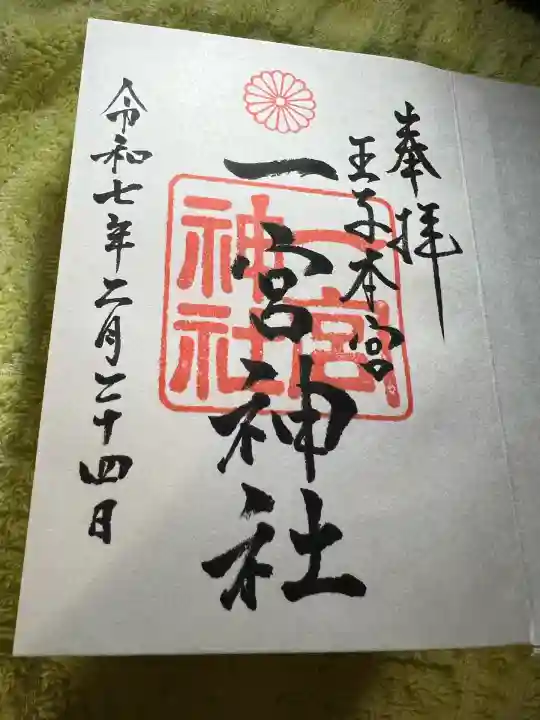 奉拝
王子本宮
一宮神社
一宮神社
令和七年二月二十四日